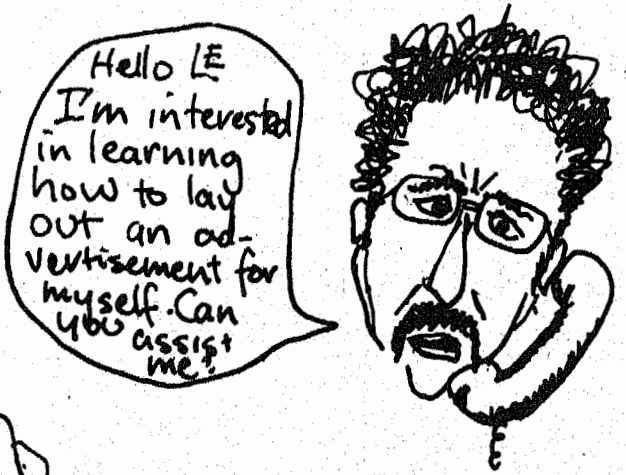 Hello LE
I'm interested
in learning
how to lay
out an ad-
vertisement for
myself. Can
you assist
me?